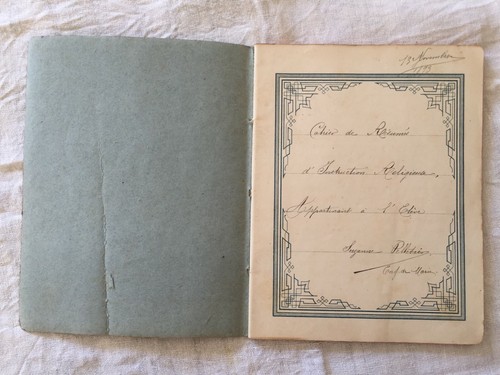 13 Novembre
Cahier de Résumés
d'Instruction Religieuse
Appartenant à l'Elève
Suzanne
Enf. de Marie